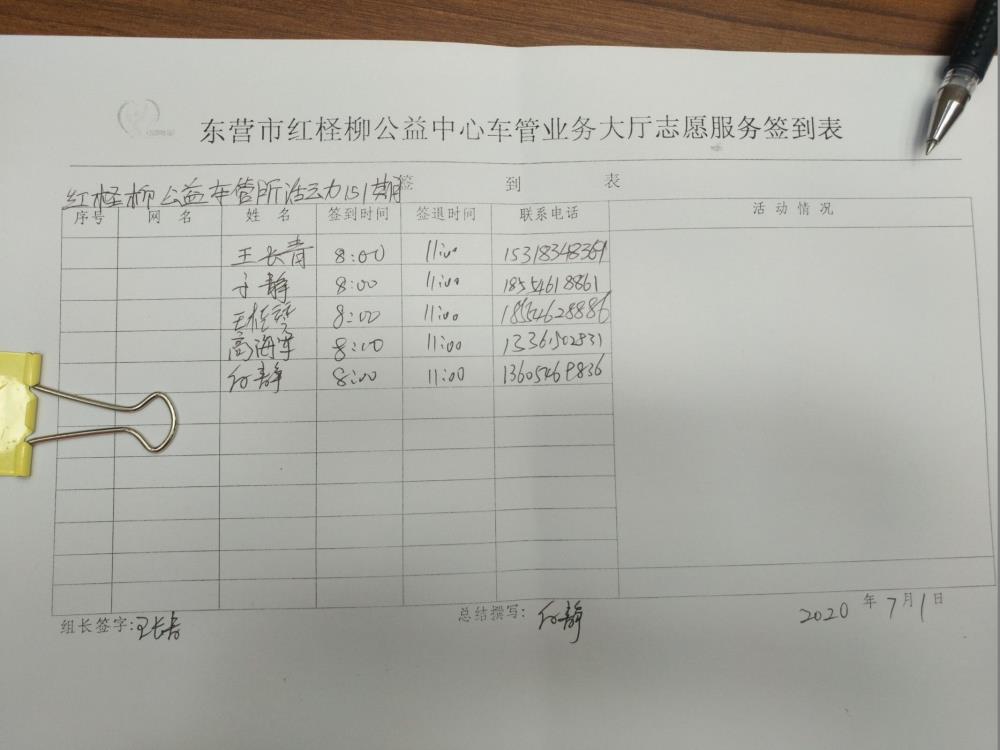 东营市红柽柳公益中心车管业务大厅志愿服务签到表
签 到 表
红柽柳公益车管所活动151期
序号 网 名 姓 名 签到时间 签退时间 联系电话 活 动 情 况
王长青 8:00 11:00 15318348361
于静 8:00 11:00 18554618861
8:00 11:00 18554628886
高海军 8:00 11:00 13361502831
付静 8:00 11:00 13605469836
组长签字:王长青 总结撰写:付静 2020 年 7 月 1 日